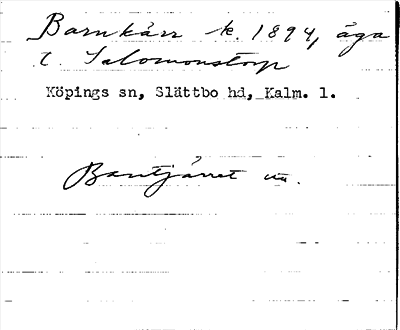 Barnkärr k. 1894, äga
t. Salomonstorp
Köpings sn, Slättbo hd, Kalm. l.
Barntjärret